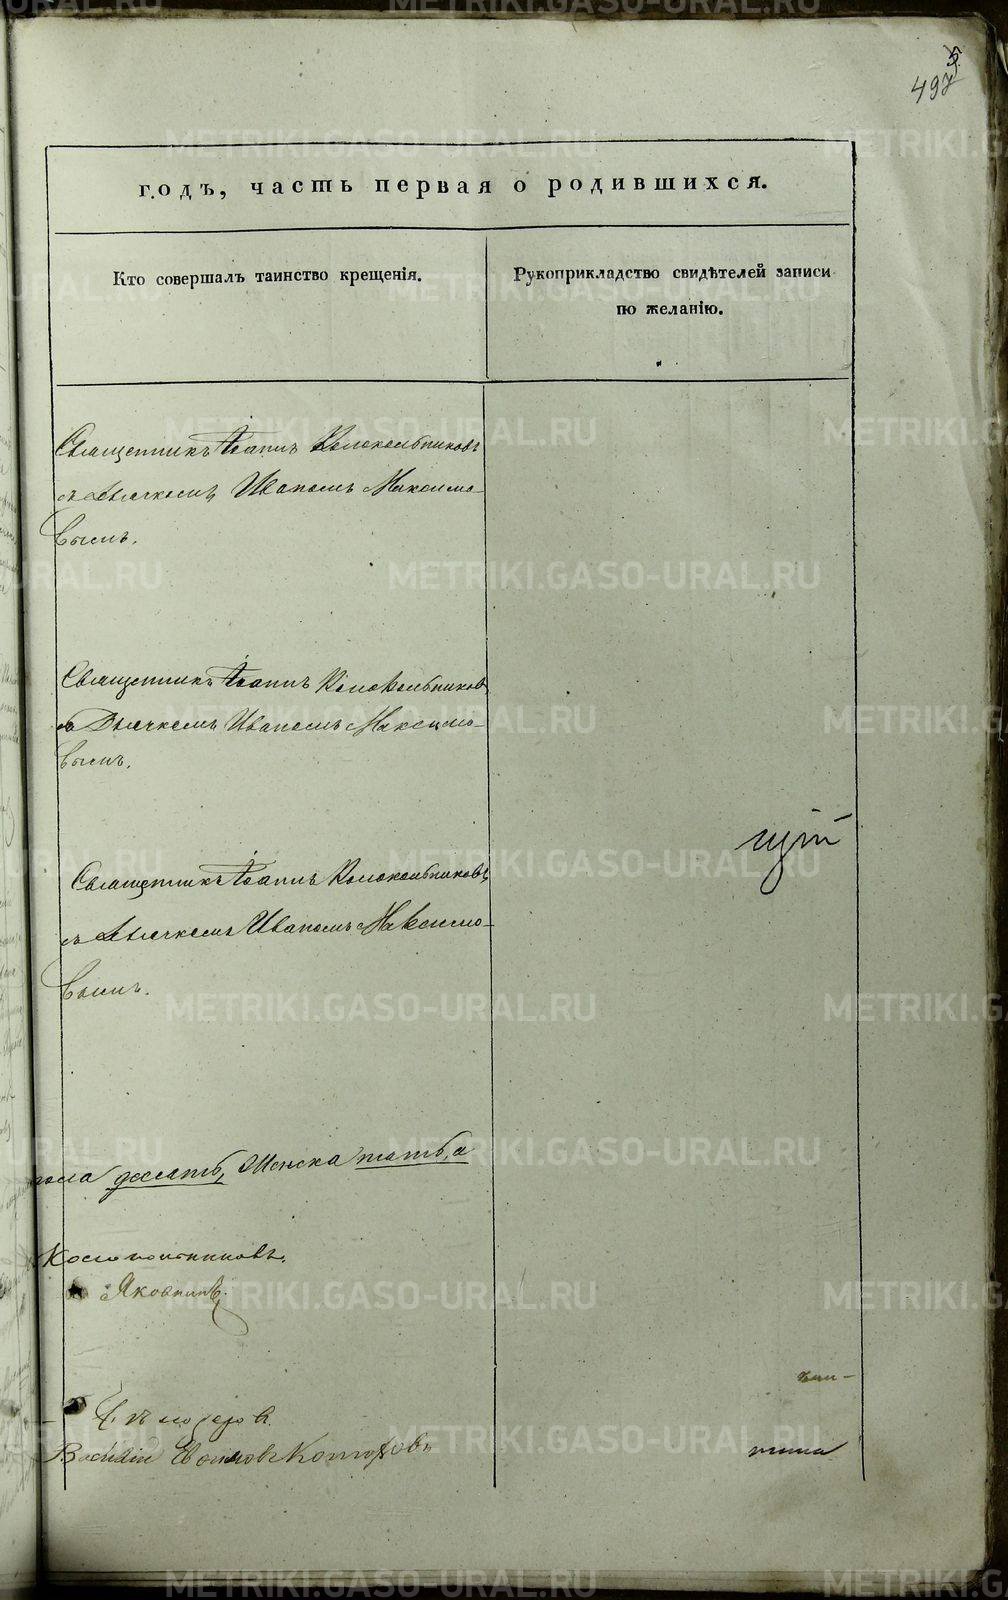 497
годъ, часть первая о родившихся.
Кто совершалъ таинство крещенія.
Рукоприкладство свидѣтелей записи
по желанію.
Священникъ Іоаннъ Колокольниковъ
съ Дьячкомъ Иваномъ Максимо-
вымъ.
Священникъ Іоаннъ Колокольниковъ
съ Дьячкомъ Иваномъ Максимо-
вымъ.
Священникъ Іоаннъ Колокольниковъ
съ Дьячкомъ Иваномъ Максимо-
вымъ.
пола десять, Женска пять, а
Колокольниковъ.
Яковкинъ
Василій
METRIKI.GASO-URAL.RU